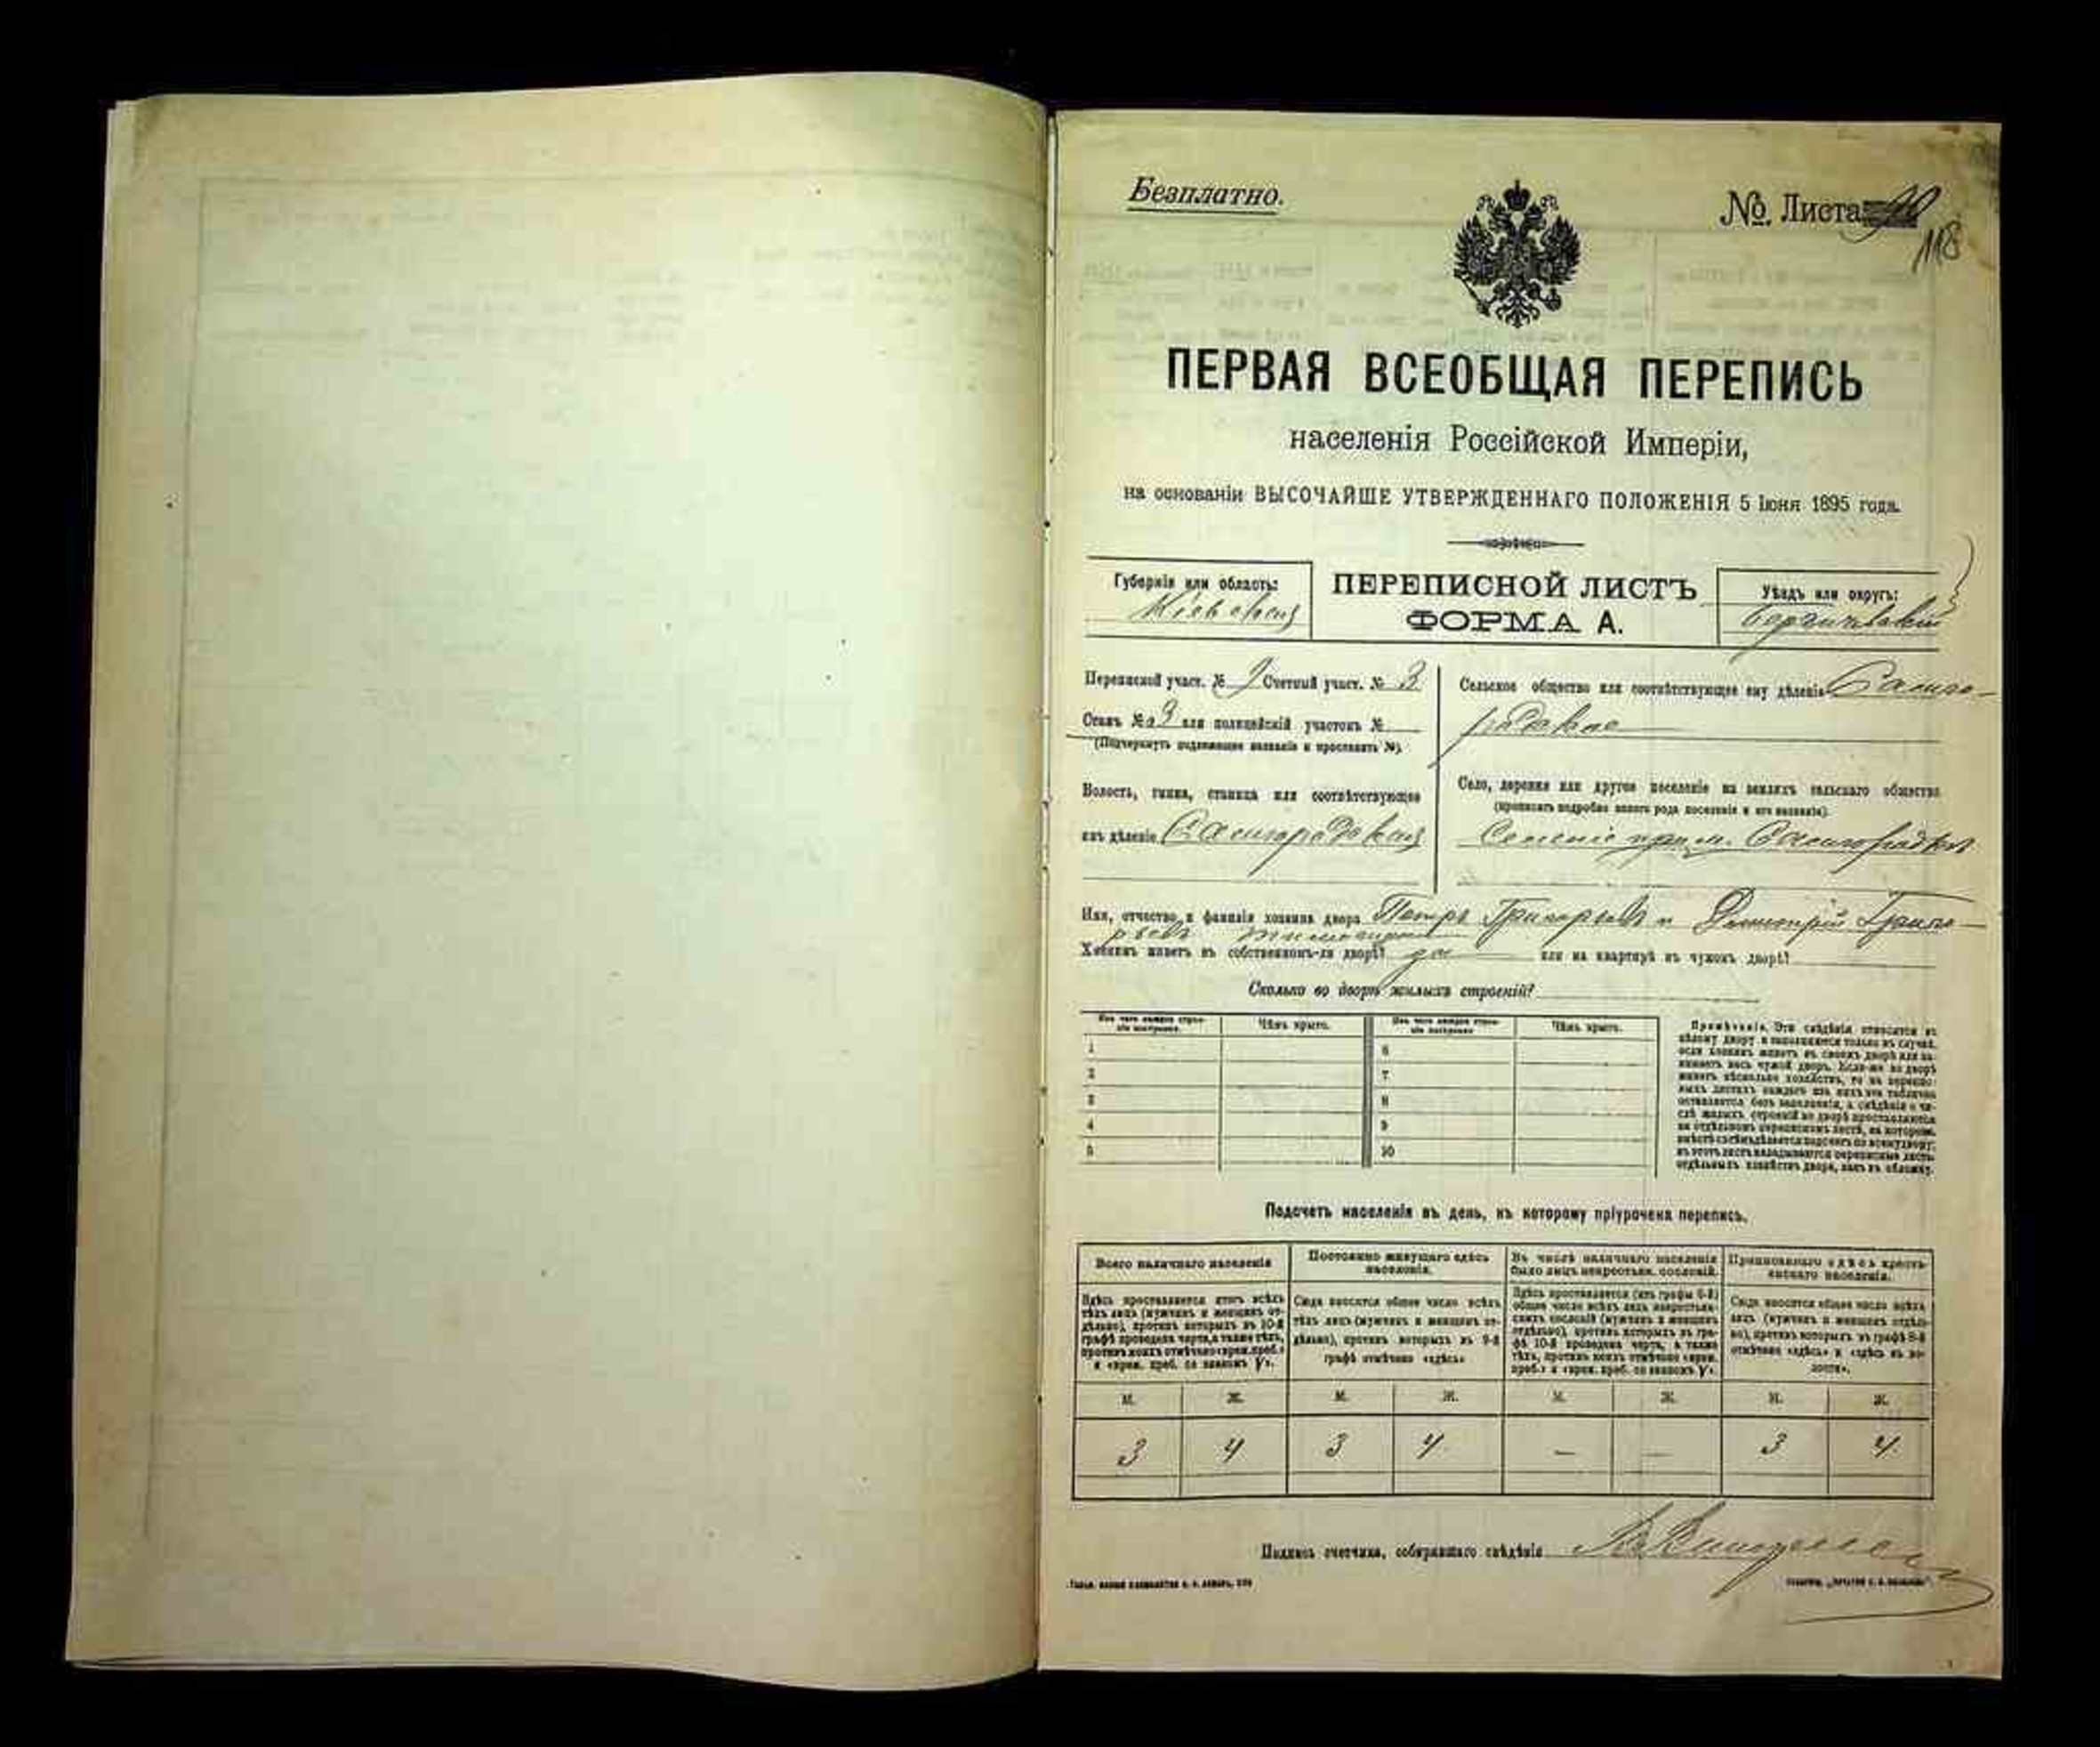 Безплатно.
№ Листа 90
118
ПЕРВАЯ ВСЕОБЩАЯ ПЕРЕПИСЬ
населенія Россійской Имперіи,
на основаніи ВЫСОЧАЙШЕ УТВЕРЖДЕННАГО ПОЛОЖЕНІЯ 5 Іюня 1895 года.
Губернія или область:
Кіевская
ПЕРЕПИСНОЙ ЛИСТЪ
ФОРМА А.
Уѣздъ или округъ:
Бердичевскій
Переписной участ. № 9 Счетный участ. № 3
Станъ № 3 или полицейскій участокъ №
(Подчеркнуть подлежащее названіе и проставить №).
Волость, гмина, станица или соотвѣтствующее
имъ дѣленіе Самгородская
Сельское общество или соотвѣтствующее ему дѣленіе Самго-
родское
Село, деревня или другое поселеніе на земляхъ сельскаго общества
(прописать подробно какого рода поселеніе и его названіе).
Селеніе при м. Самгородкѣ
Имя, отчество и фамилія хозяина двора Петръ Григорьевъ и Димитрій Григо-
рьевъ
Хозяинъ живетъ въ собственномъ-ли дворѣ? да или на квартирѣ въ чужомъ дворѣ?
Сколько во дворѣ жилыхъ строеній?
Изъ чего каждое строе-
ніе построено.
Чѣмъ крыто.
Изъ чего каждое строе-
ніе построено.
Чѣмъ крыто.
1 6
2 7
3 8
4 9
5 10
Примѣчаніе. Эти свѣдѣнія относятся къ
цѣлому двору и заполняются только въ случаѣ,
если хозяинъ живетъ въ своемъ дворѣ или за-
нимаетъ весь чужой дворъ. Если-же во дворѣ
живетъ нѣсколько хозяйствъ, то на перепис-
ныхъ листахъ каждаго изъ нихъ эта табличка
оставляется безъ заполненія, а свѣдѣнія о чи-
слѣ жилыхъ строеній во дворѣ проставляются
на отдѣльномъ переписномъ листѣ, на которомъ
вмѣстѣ съ тѣмъ дѣлается подсчетъ по всему двору;
въ этотъ листъ вкладываются переписные листы
отдѣльныхъ хозяйствъ двора, какъ въ обложку.
Подсчетъ населенія въ день, къ которому пріурочена перепись.
Всего наличнаго населенія
Постоянно живущаго здѣсь
населенія.
Въ числѣ наличнаго населенія
было лицъ некрестьян. сословій.
Приписаннаго здѣсь кресть-
янскаго населенія.
Здѣсь проставляется итогъ всѣхъ
тѣхъ лицъ (мужчинъ и женщинъ от-
дѣльно), противъ которыхъ въ 10-й
графѣ проведена черта, а также тѣхъ,
противъ коихъ отмѣчено «врем. преб.»
и «врем. преб. со знакомъ V».
Сюда вносится общее число всѣхъ
тѣхъ лицъ (мужчинъ и женщинъ от-
дѣльно), противъ которыхъ въ 9-й
графѣ отмѣчено «здѣсь»
Здѣсь проставляется (изъ графы 6-й)
общее число всѣхъ лицъ некрестьян-
скихъ сословій (мужчинъ и женщинъ
отдѣльно), противъ которыхъ въ гра-
фѣ 10-й проведена черта, а также
тѣхъ, противъ коихъ отмѣчено «врем.
преб.» и «врем. преб. со знакомъ V».
Сюда вносится общее число всѣхъ
лицъ (мужчинъ и женщинъ отдѣль-
но), противъ которыхъ въ графѣ 8-й
отмѣчено «здѣсь» и «здѣсь въ во-
лости».
М. Ж. М. Ж. М. Ж. М. Ж.
3 4 3 4 — — 3 4
Подпись счетчика, собиравшаго свѣдѣнія